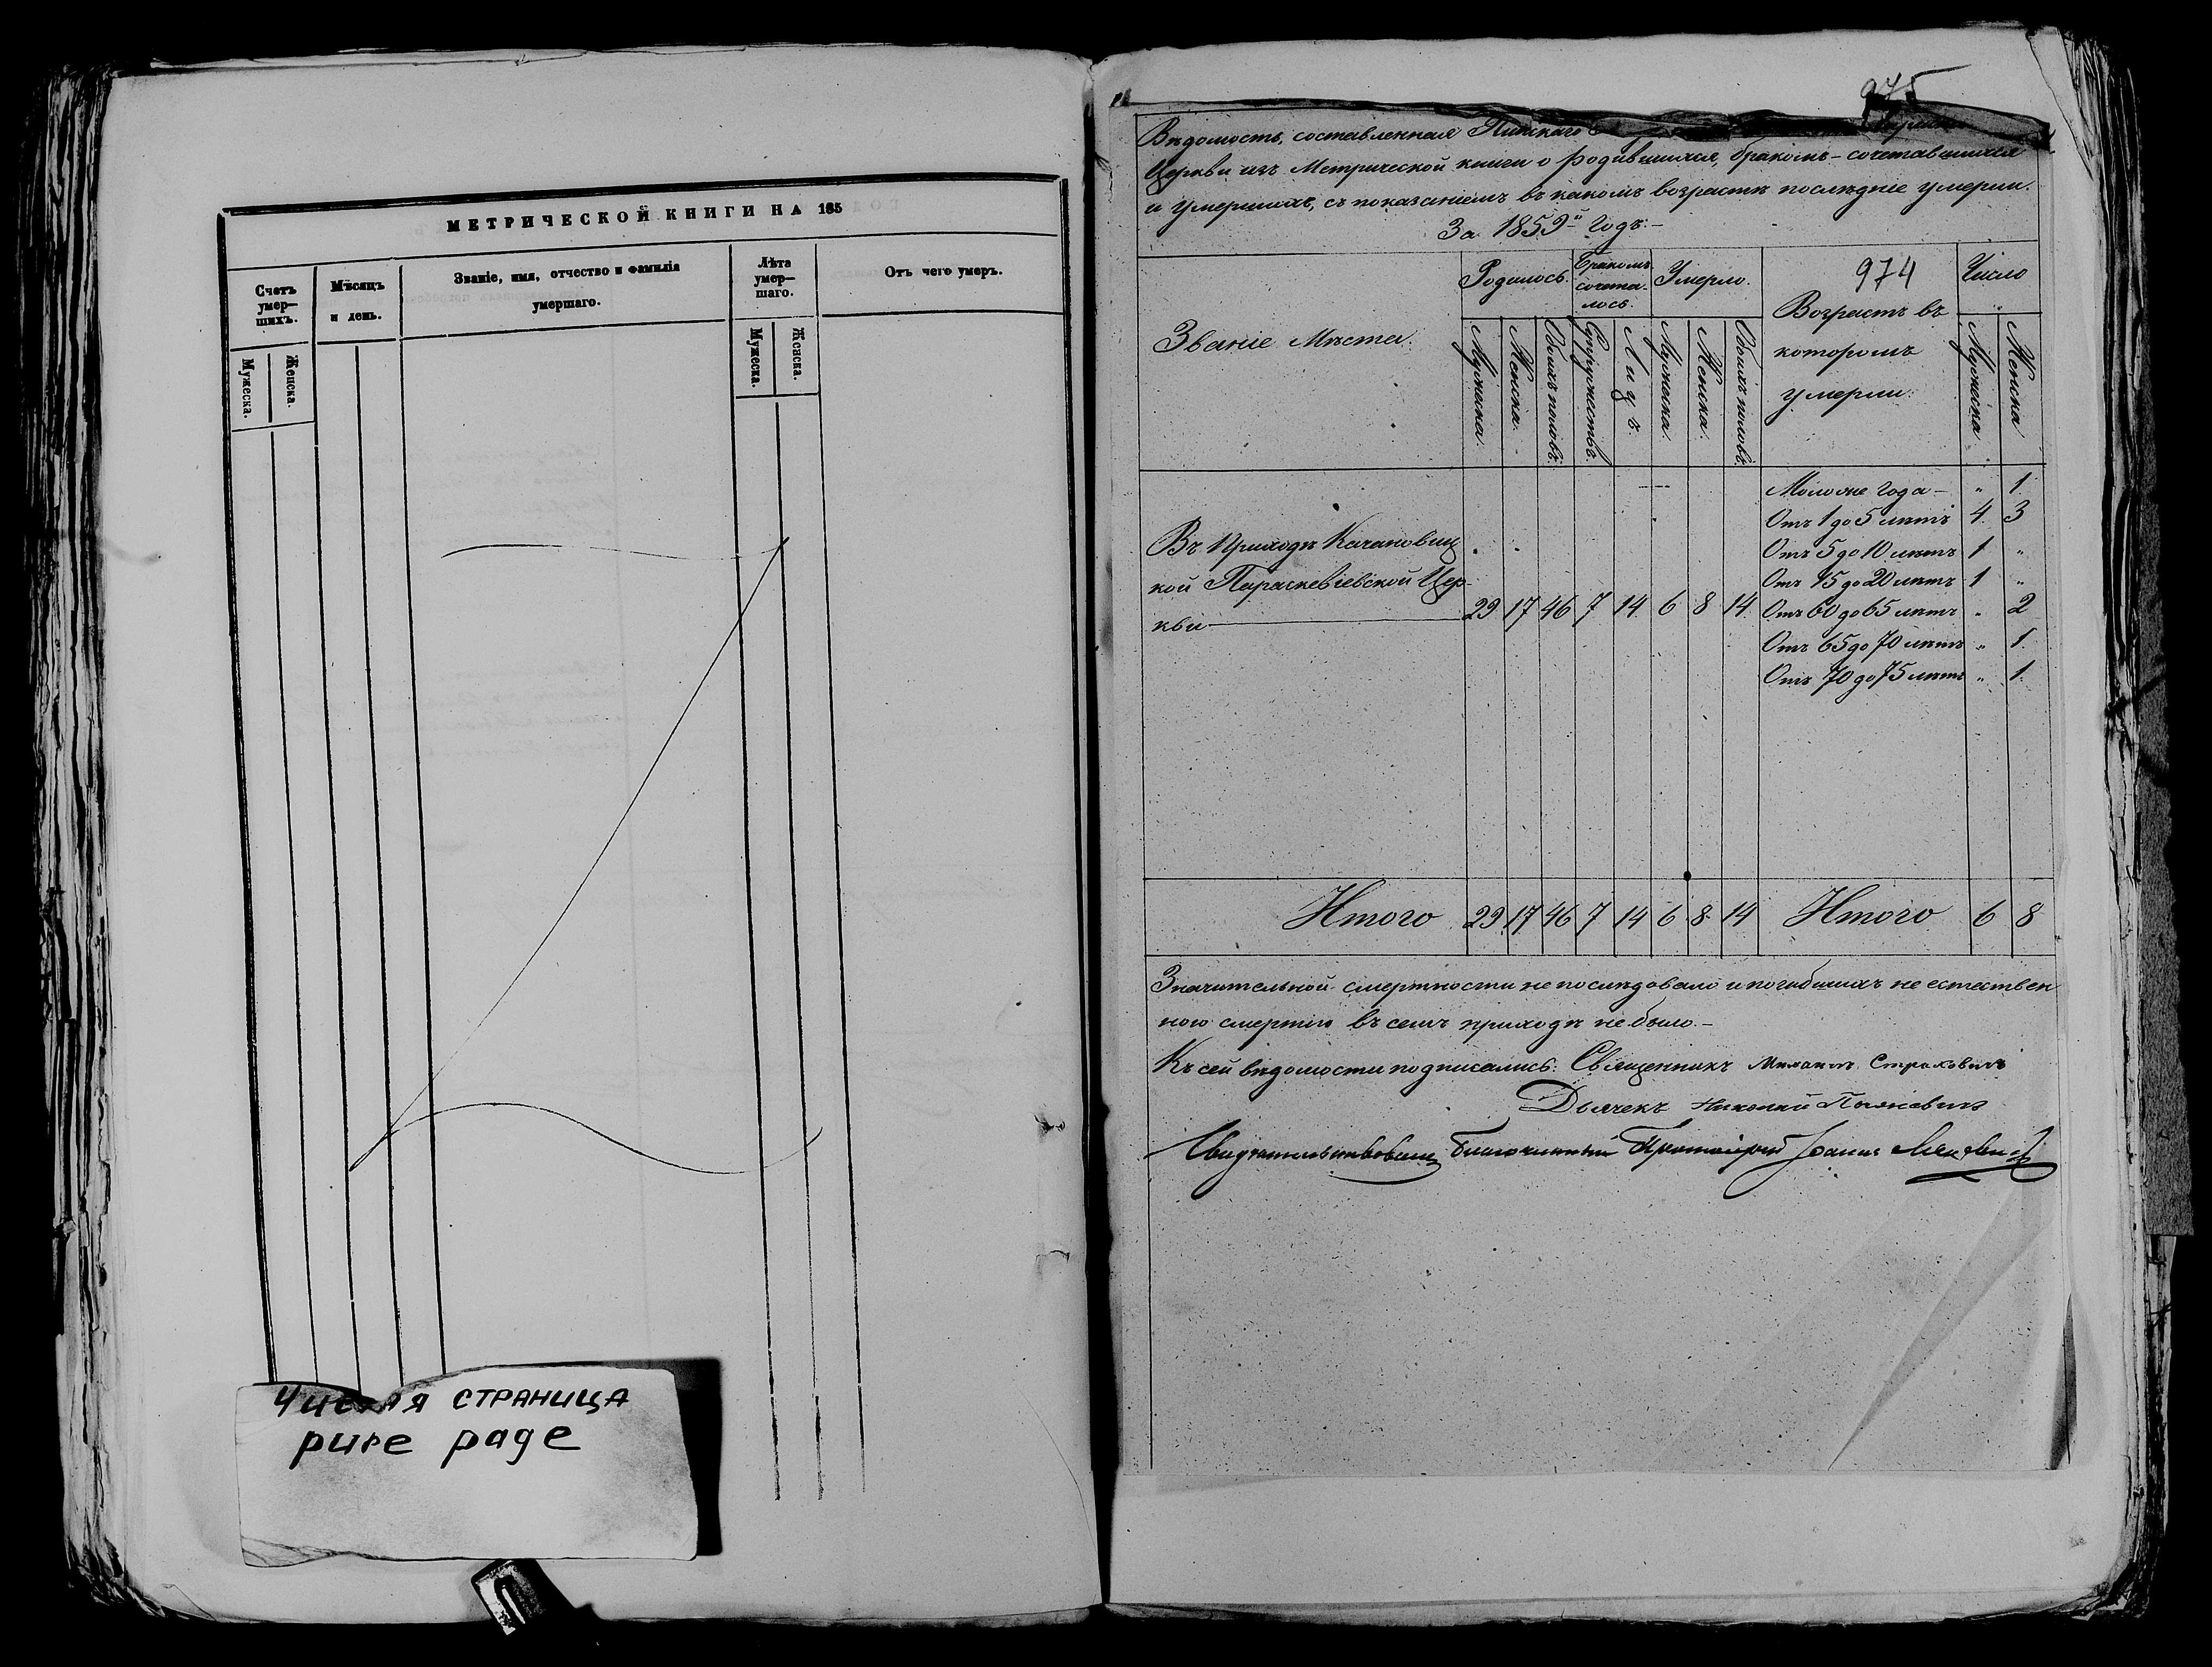 МЕТРИЧЕСКОЙ КНИГИ НА 185
Счетъ умер— шихъ.
Мѣсяцъ и день.
Званіе, имя, отчество и фамилія умершаго.
Лѣта умер— шаго.
Отъ чего умеръ.
Мужеска.
Женска.
Мужеска.
Женска.
Чистая СТРАНИЦА
pure page
975
Вѣдомость, составленная Пинскаго
Церкви изъ Метрической книги о родившихся, бракомъ-сочетавшихся
и умершихъ, съ показаніемъ въ какомъ возрастѣ послѣдніе умерли.
За 1859й годъ.—
Званіе Мѣста.
Родилось.
Бракомъ сочета- лось.
Умерло.
974
Возрастъ въ
которомъ
умерли.
Число
Мужеска.
Женска.
Обоихъ половъ.
Супружествъ.
Лицъ.
Мужеска.
Женска.
Обоихъ половъ.
Мужеска
Женска
Моложе года — „ 1.
Отъ 1 до 5 лѣтъ 4. 3
Отъ 5 до 10 лѣтъ 1 „
Отъ 15 до 20 лѣтъ 1 „
Отъ 60 до 65 лѣтъ „ 2
Отъ 65 до 70 лѣтъ „ 1.
Отъ 70 до 75 лѣтъ „ 1.
Въ Приходѣ Качановиц
кой Параскевіевской Цер-
кви 29 17 46 7 14 6 8 14
Итого 29 17 46 7 14 6 8 14 Итого 6 8
Значительной смертности не послѣдовало и погибшихъ не естествен
ною смертію въ семъ приходѣ не было.—
Къ сей вѣдомости подписались: Священникъ Михаилъ Страховичъ
Дьячекъ Николай
Свидѣтельствовалъ Благочинный Протоіерей Іоаннъ